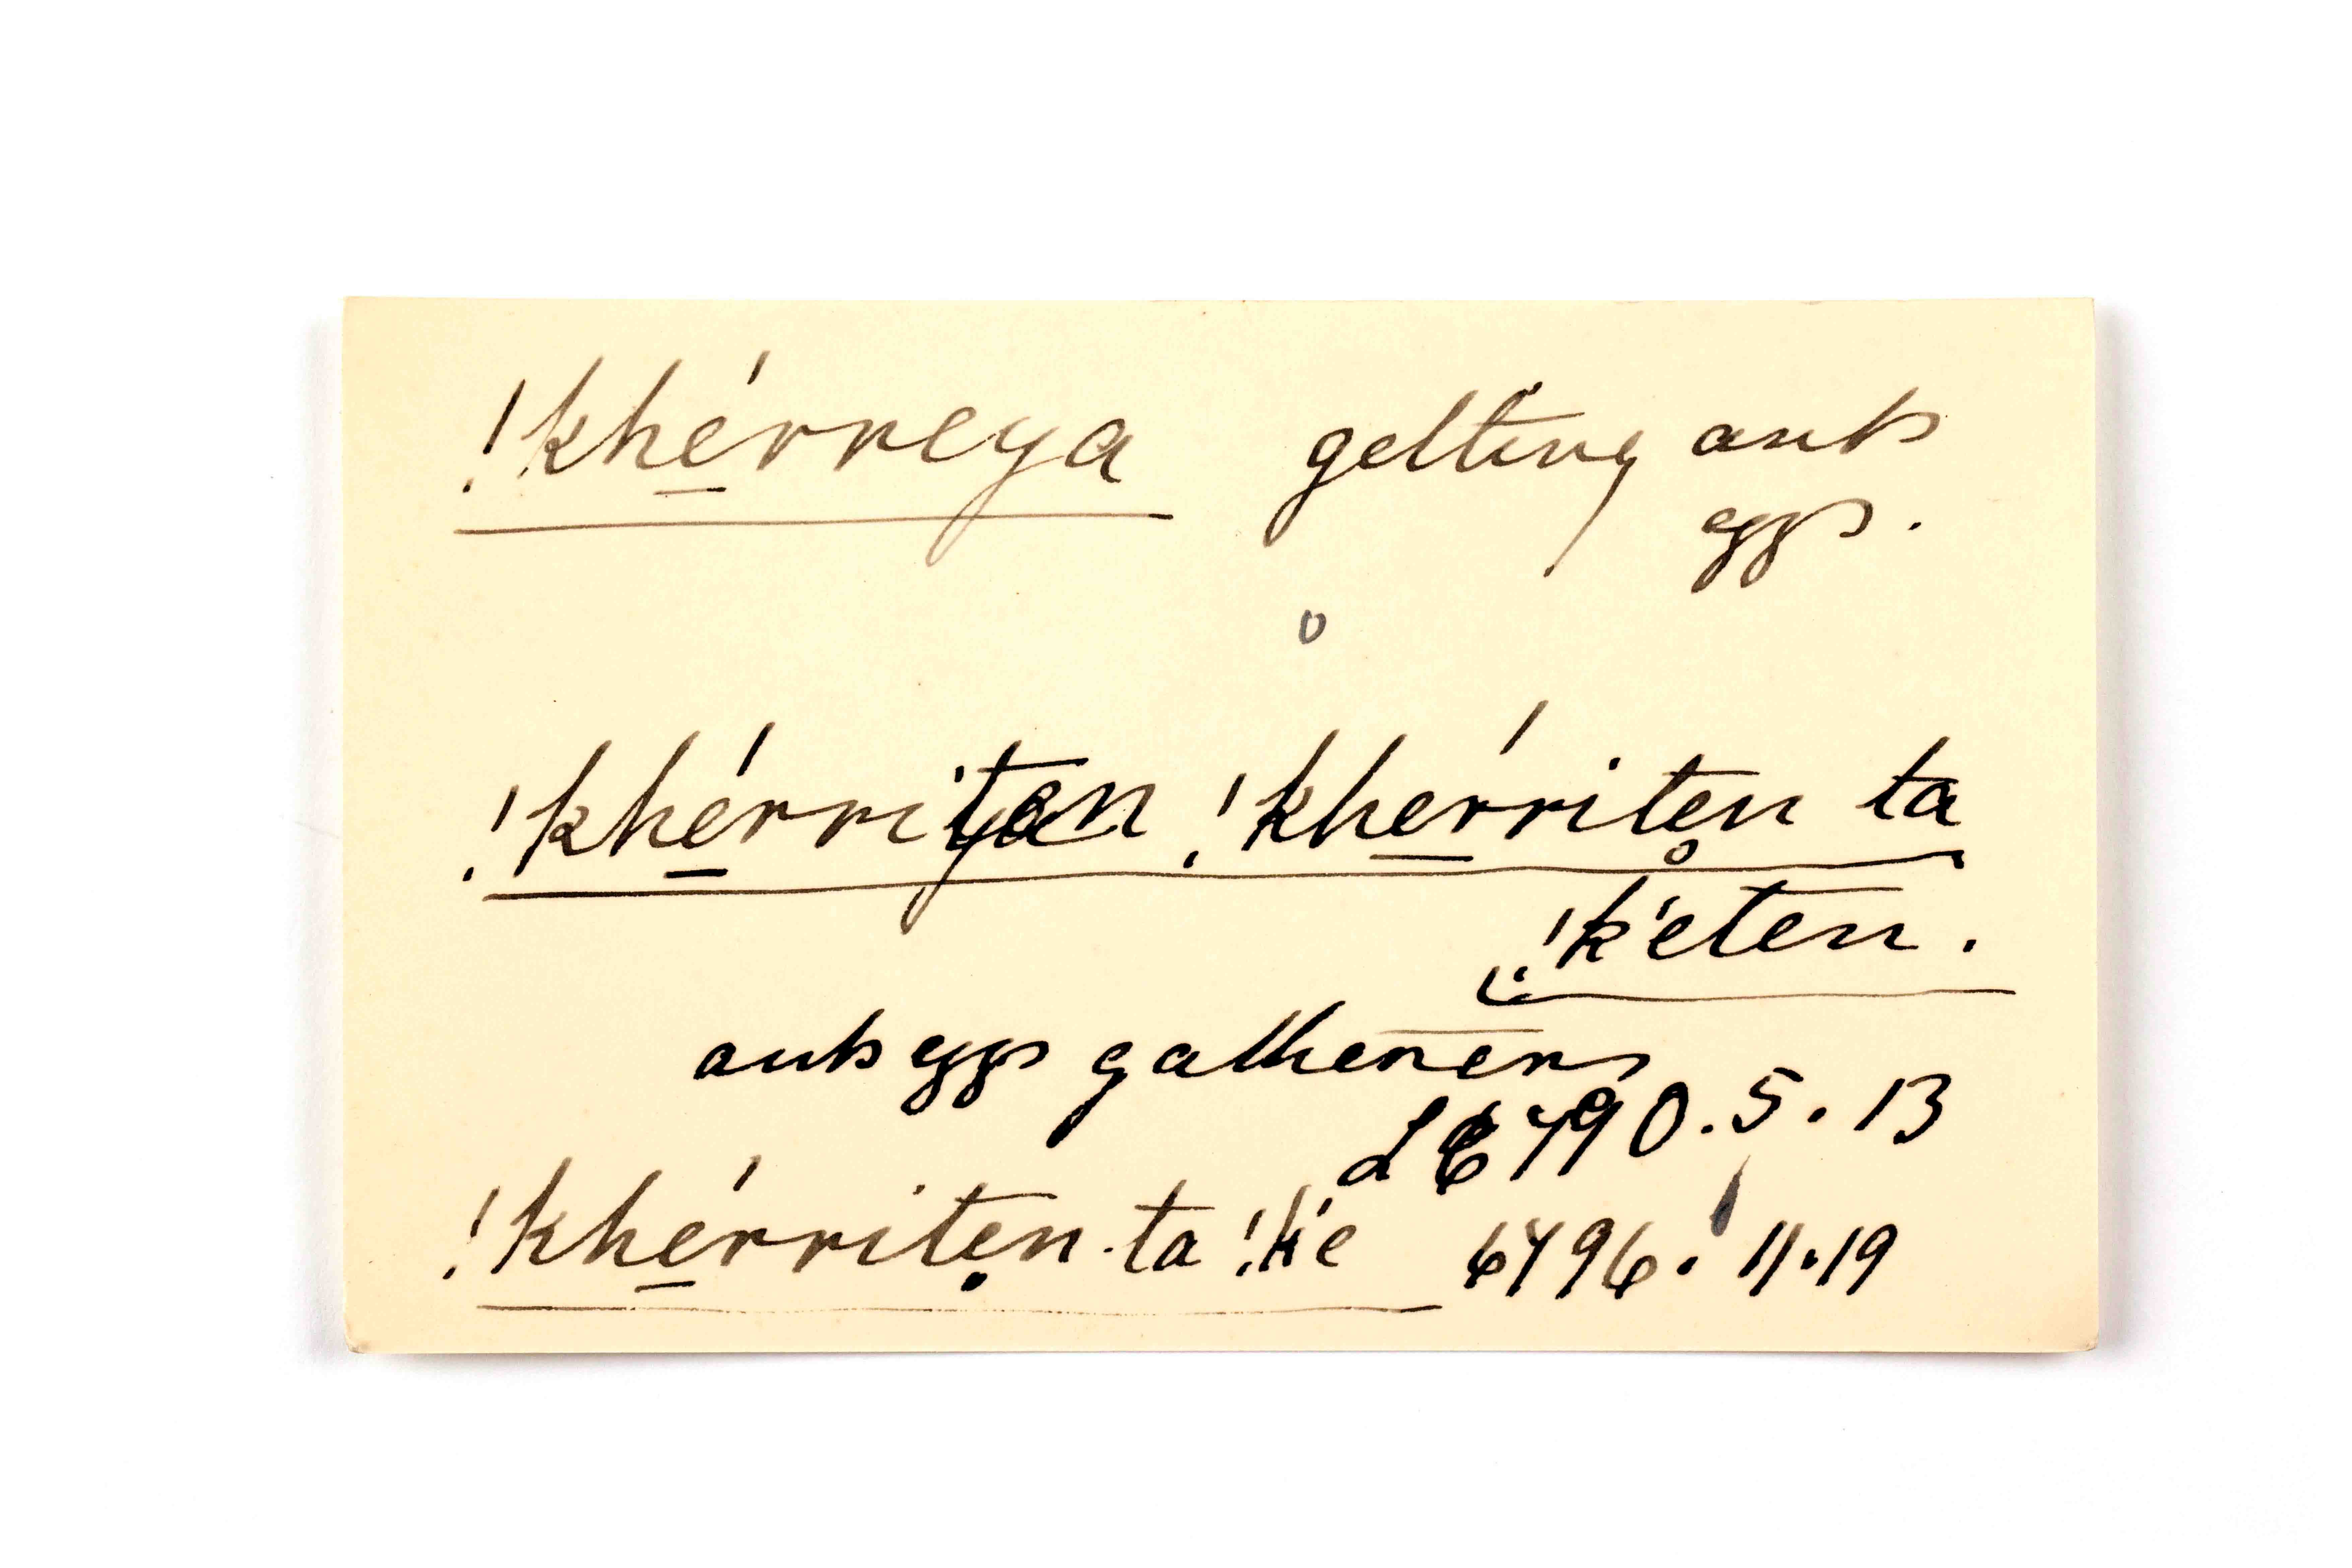 !khérreya getting ants
eggs.
!khérriten !khérriten ta
!k'eten.
ants eggs gatherers
L 6790.5.13
!khérriten-ta !k'e 6796. 11.19